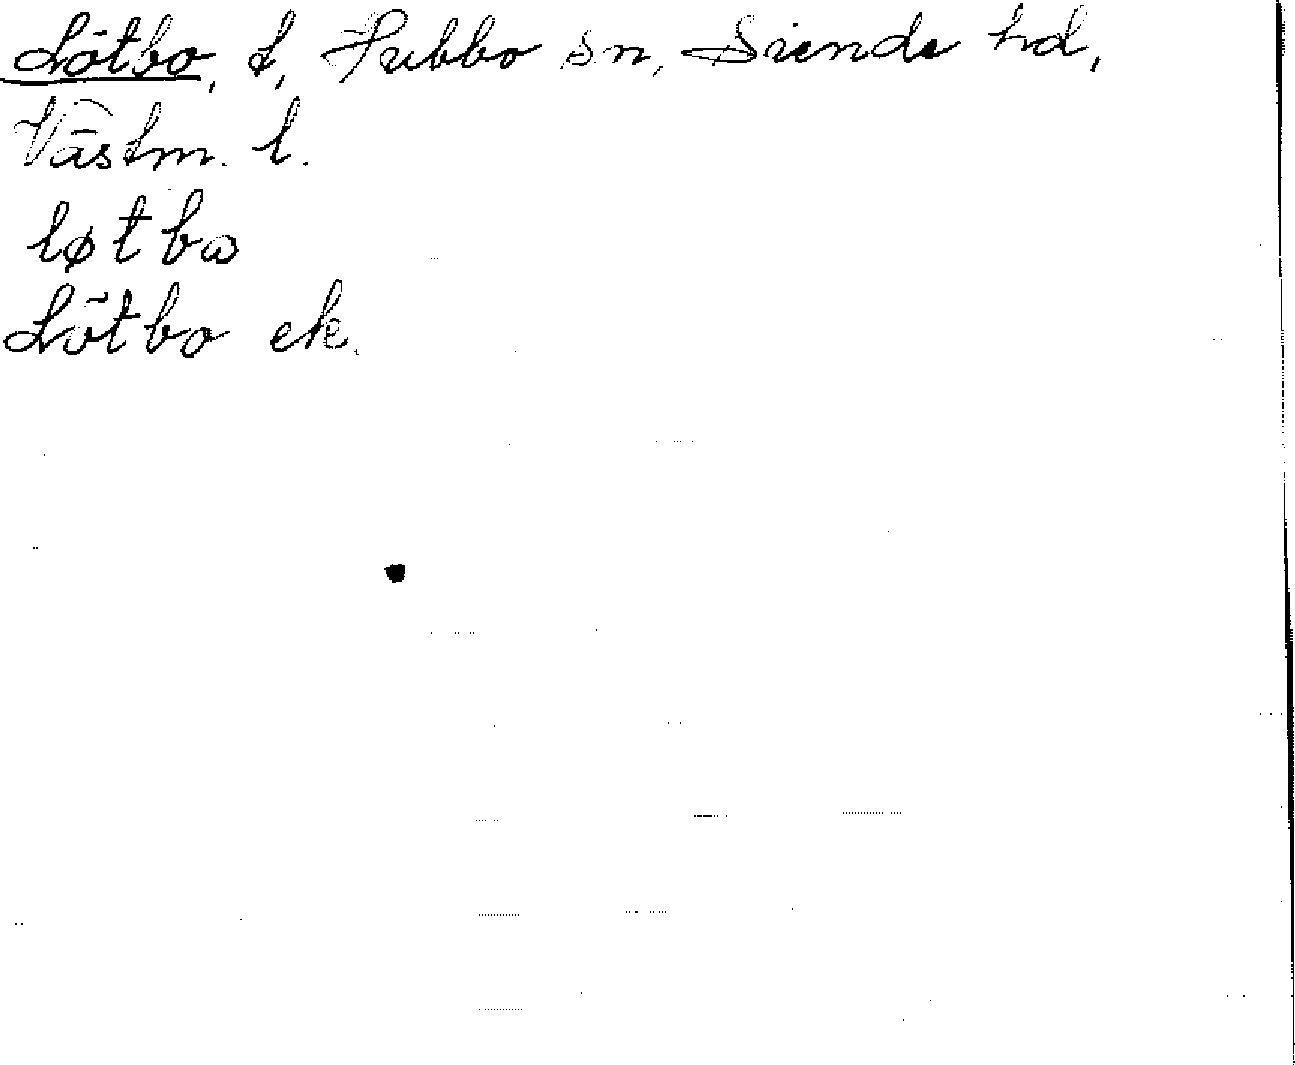 Lötbo, t, Hubbo sn, Siende hd,
Västm. l.
løtbω
Lötbo ek.